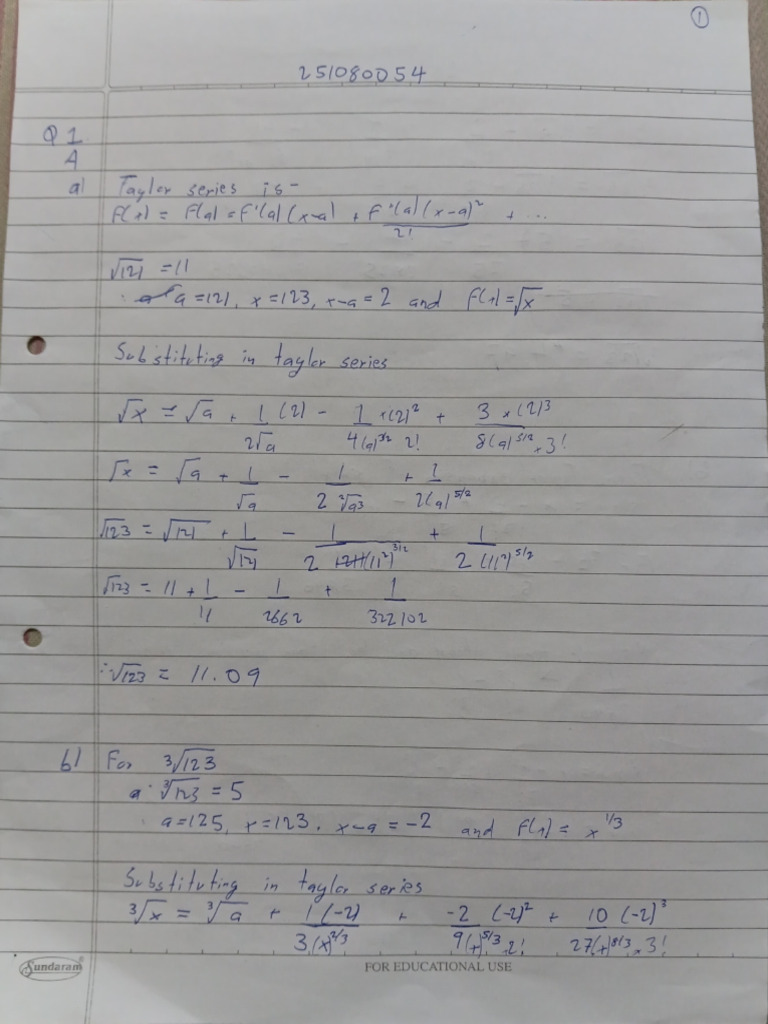 1
251080054
Q 1
A
a) Taylor series is -
F(x) = F(a) = F'(a) (x-a) + F''(a) (x-a)² / 2! + ...
√121 = 11
a = 121, x = 123, x-a = 2 and F(x) = √x
Substituting in taylor series
√x = √a + 1/(2√a) (2) - 1/(4(a)^3/2 2!) × (2)² + 3 × (2)³ / (8(a)^5/2 × 3!)
√x = √a + 1/√a - 1/(2 ²√a³) + 1/(2(a)^5/2)
√123 = √121 + 1/√121 - 1/(2 (11²)^3/2) + 1/(2 (11²)^5/2)
√123 = 11 + 1/11 - 1/2662 + 1/322102
∴ √123 = 11.09
b) For ³√123
a ∙ ³√123 = 5
a=125, x=123, x-a = -2 and F(x) = x^1/3
Substituting in taylor series
³√x = ³√a + 1 (-2) / (3(x)^2/3) + -2 (-2)² / (9(x)^5/3 × 2!) + 10 (-2)³ / (27(x)^8/3 × 3!)
Sundaram
FOR EDUCATIONAL USE